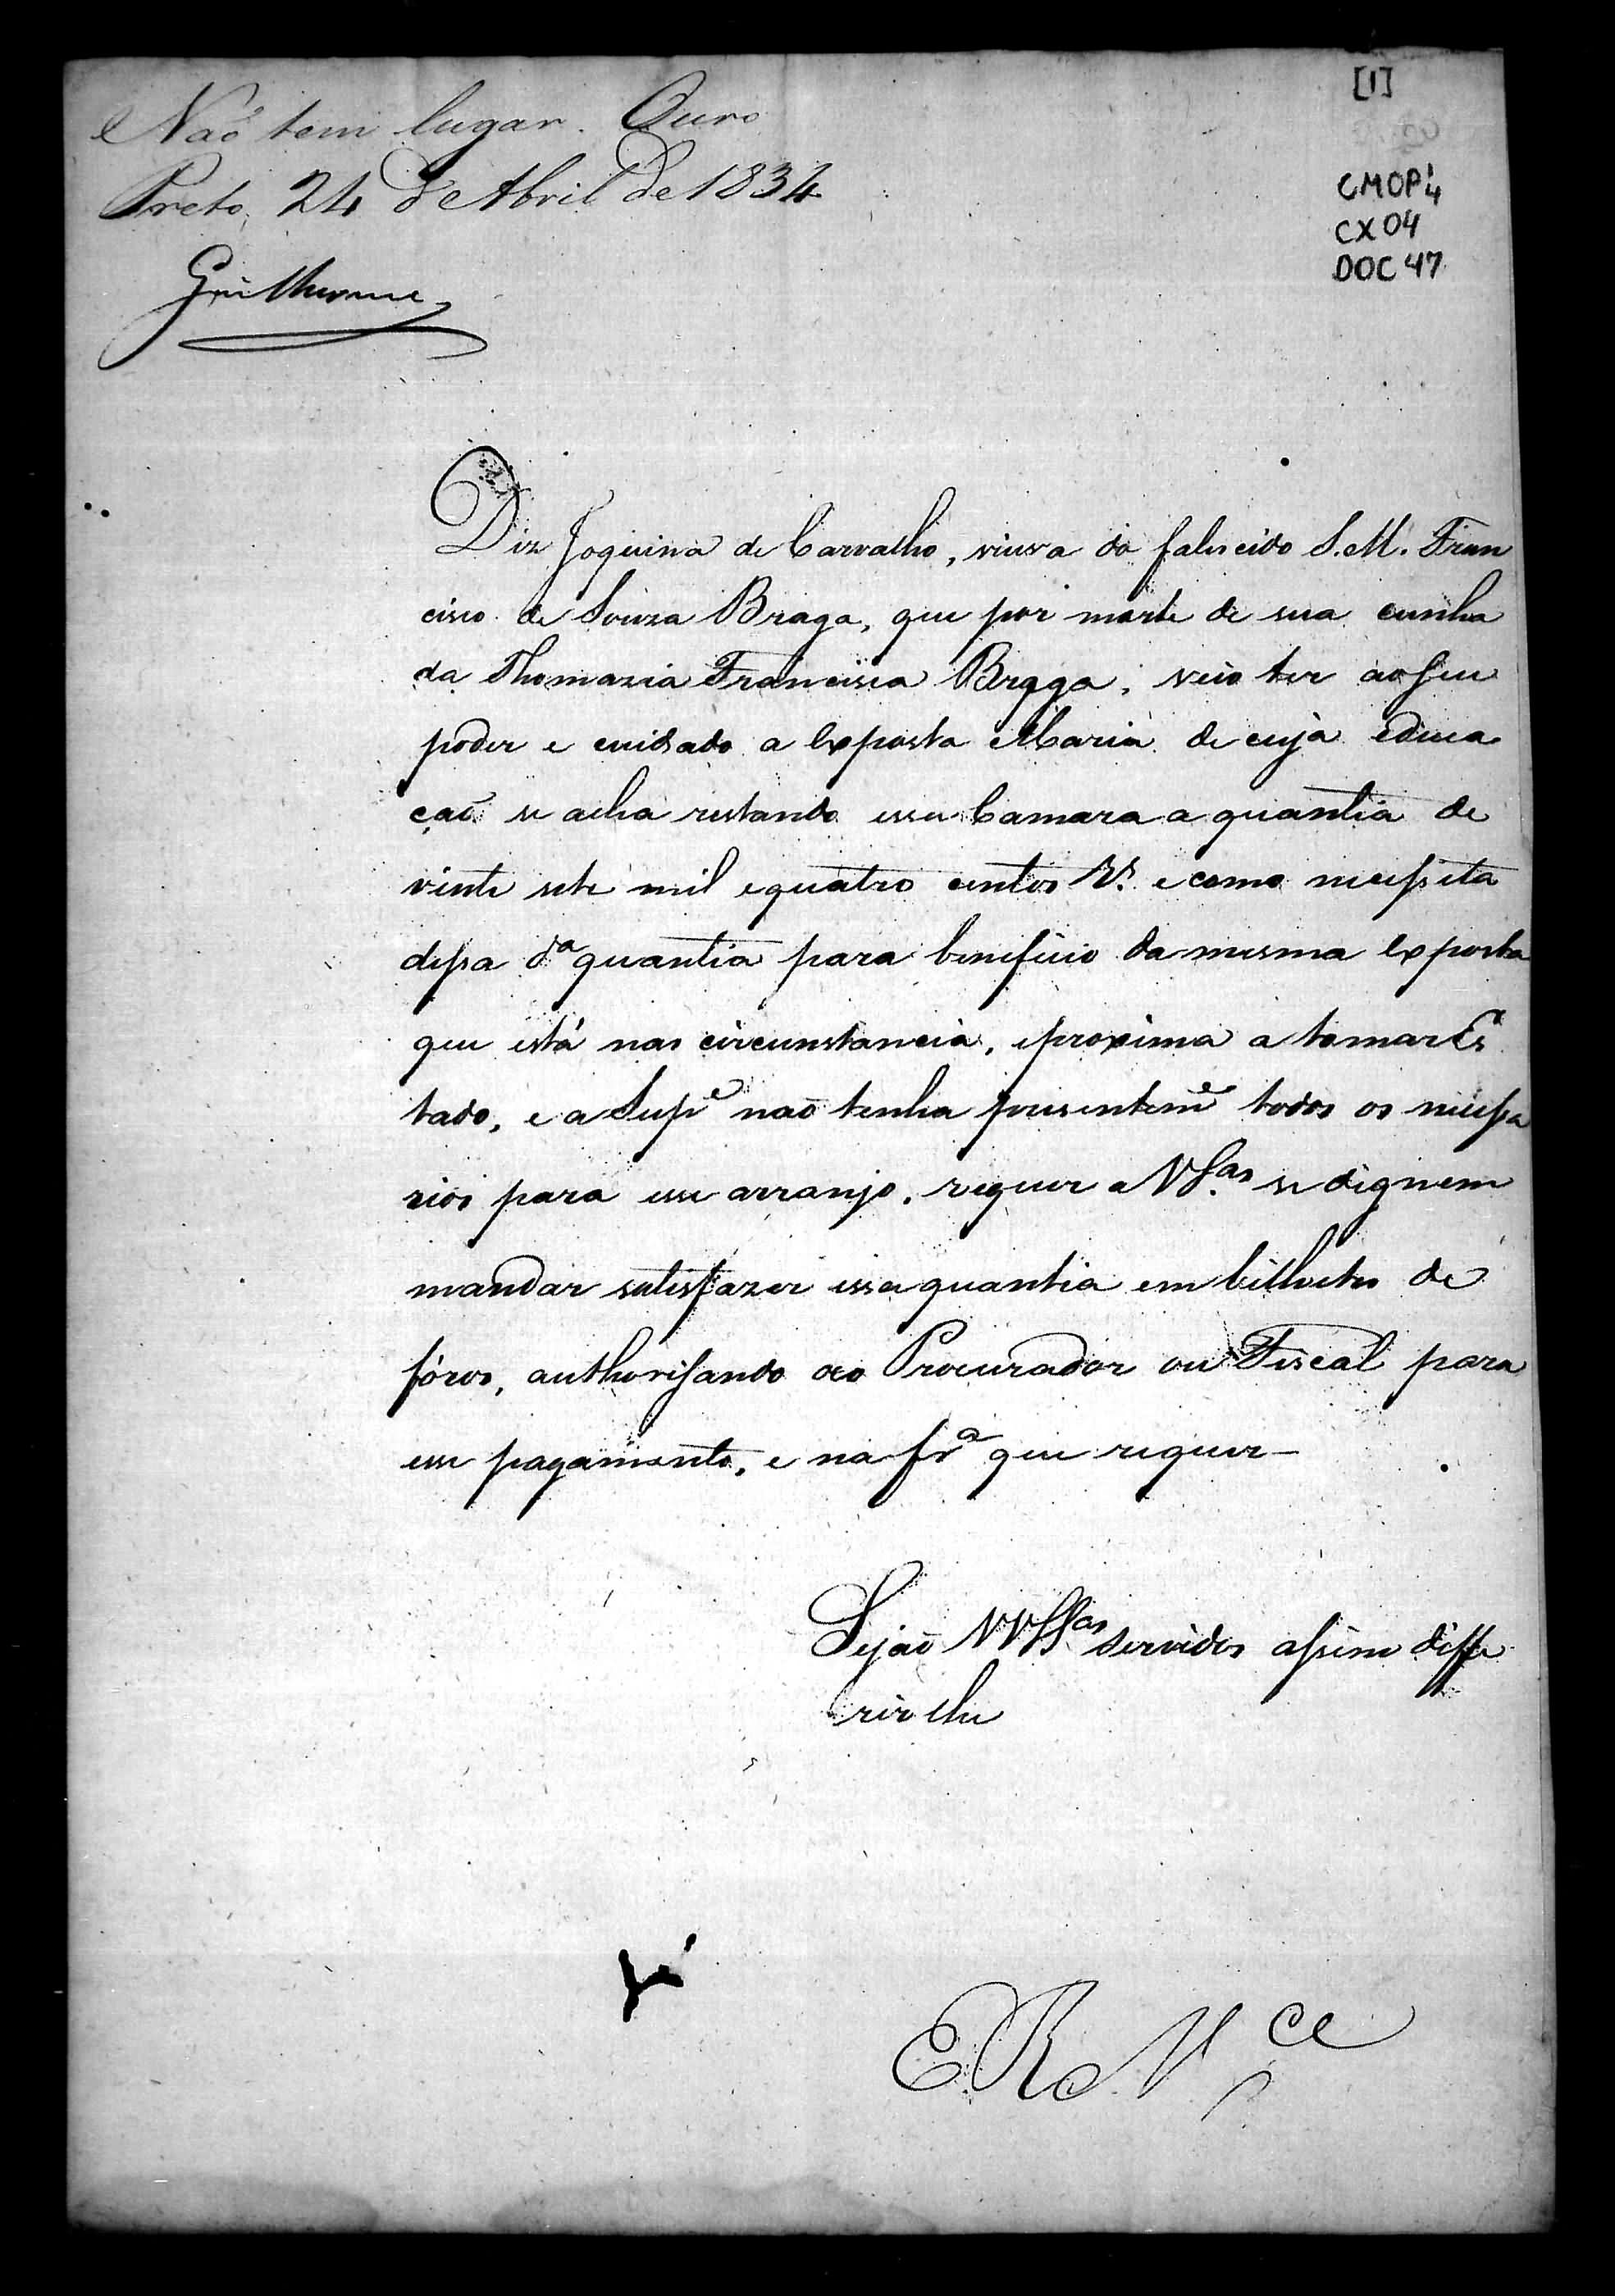 [1]
Naõ tem lugar. Ouro
Preto, 24 de Abril de 1834
Guilherme
CMOP4
CX04
DOC 47
Diz Joquina de Carvalho, viuva do falescido S. M. Fran
cisco de Souza Braga, que por morte de sua cunha
da Thomazia Francisca Braga, veio ter ao seu
poder e cuidado a Exposta Maria de cuja educa
çaõ se acha restando essa Camara a quantia de
vinte sete mil e quatro centos rs. e como necessita
dessa da quantia para beneficio da mesma Exposta
que está nas circunstancia, e proxima a tomar Es
tado, e a Supe naõ tenha presenteme todos os necessa
rios para esse arranjo, requer a VSas se dignem
mandar satisfazer essa quantia em bilhetes de
fóros, authorisando ao Procurador ou Fiscal para
esse pagamento, e na fra que requer—
Sejaõ VVSSas servidos assim diffe
rir lhe
E R Mce